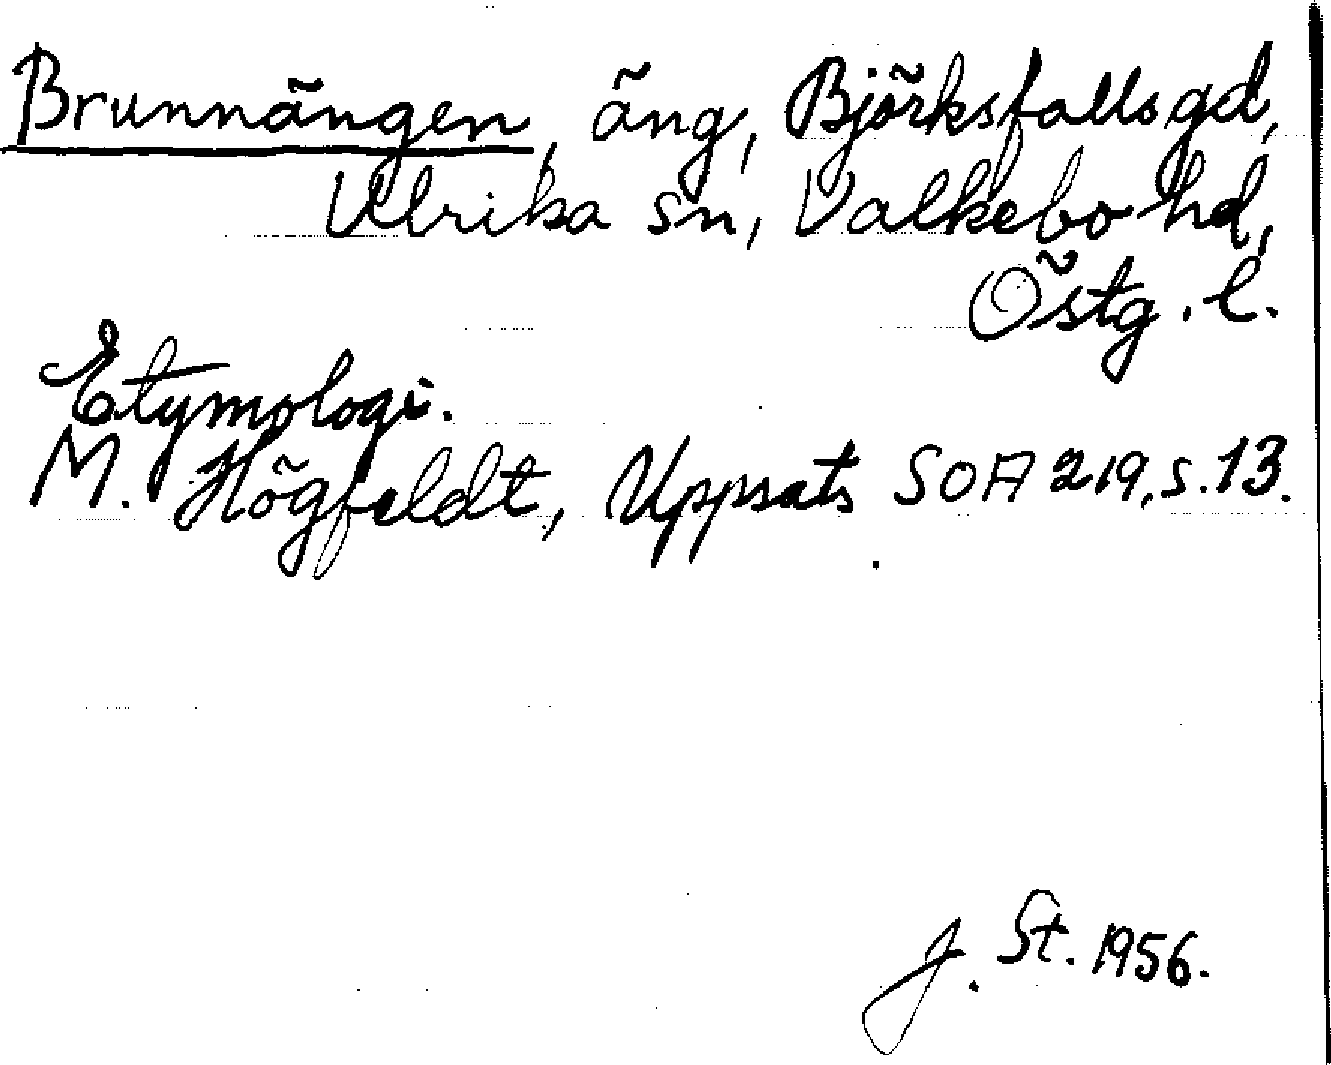 Brunnängen, äng, Björksfallsgd,
Ulrika sn, Valkebo hd,
Östg. l.
Etymologi.
M. Högfeldt, Uppsats SOA 219, s. 13.
J. St. 1956.